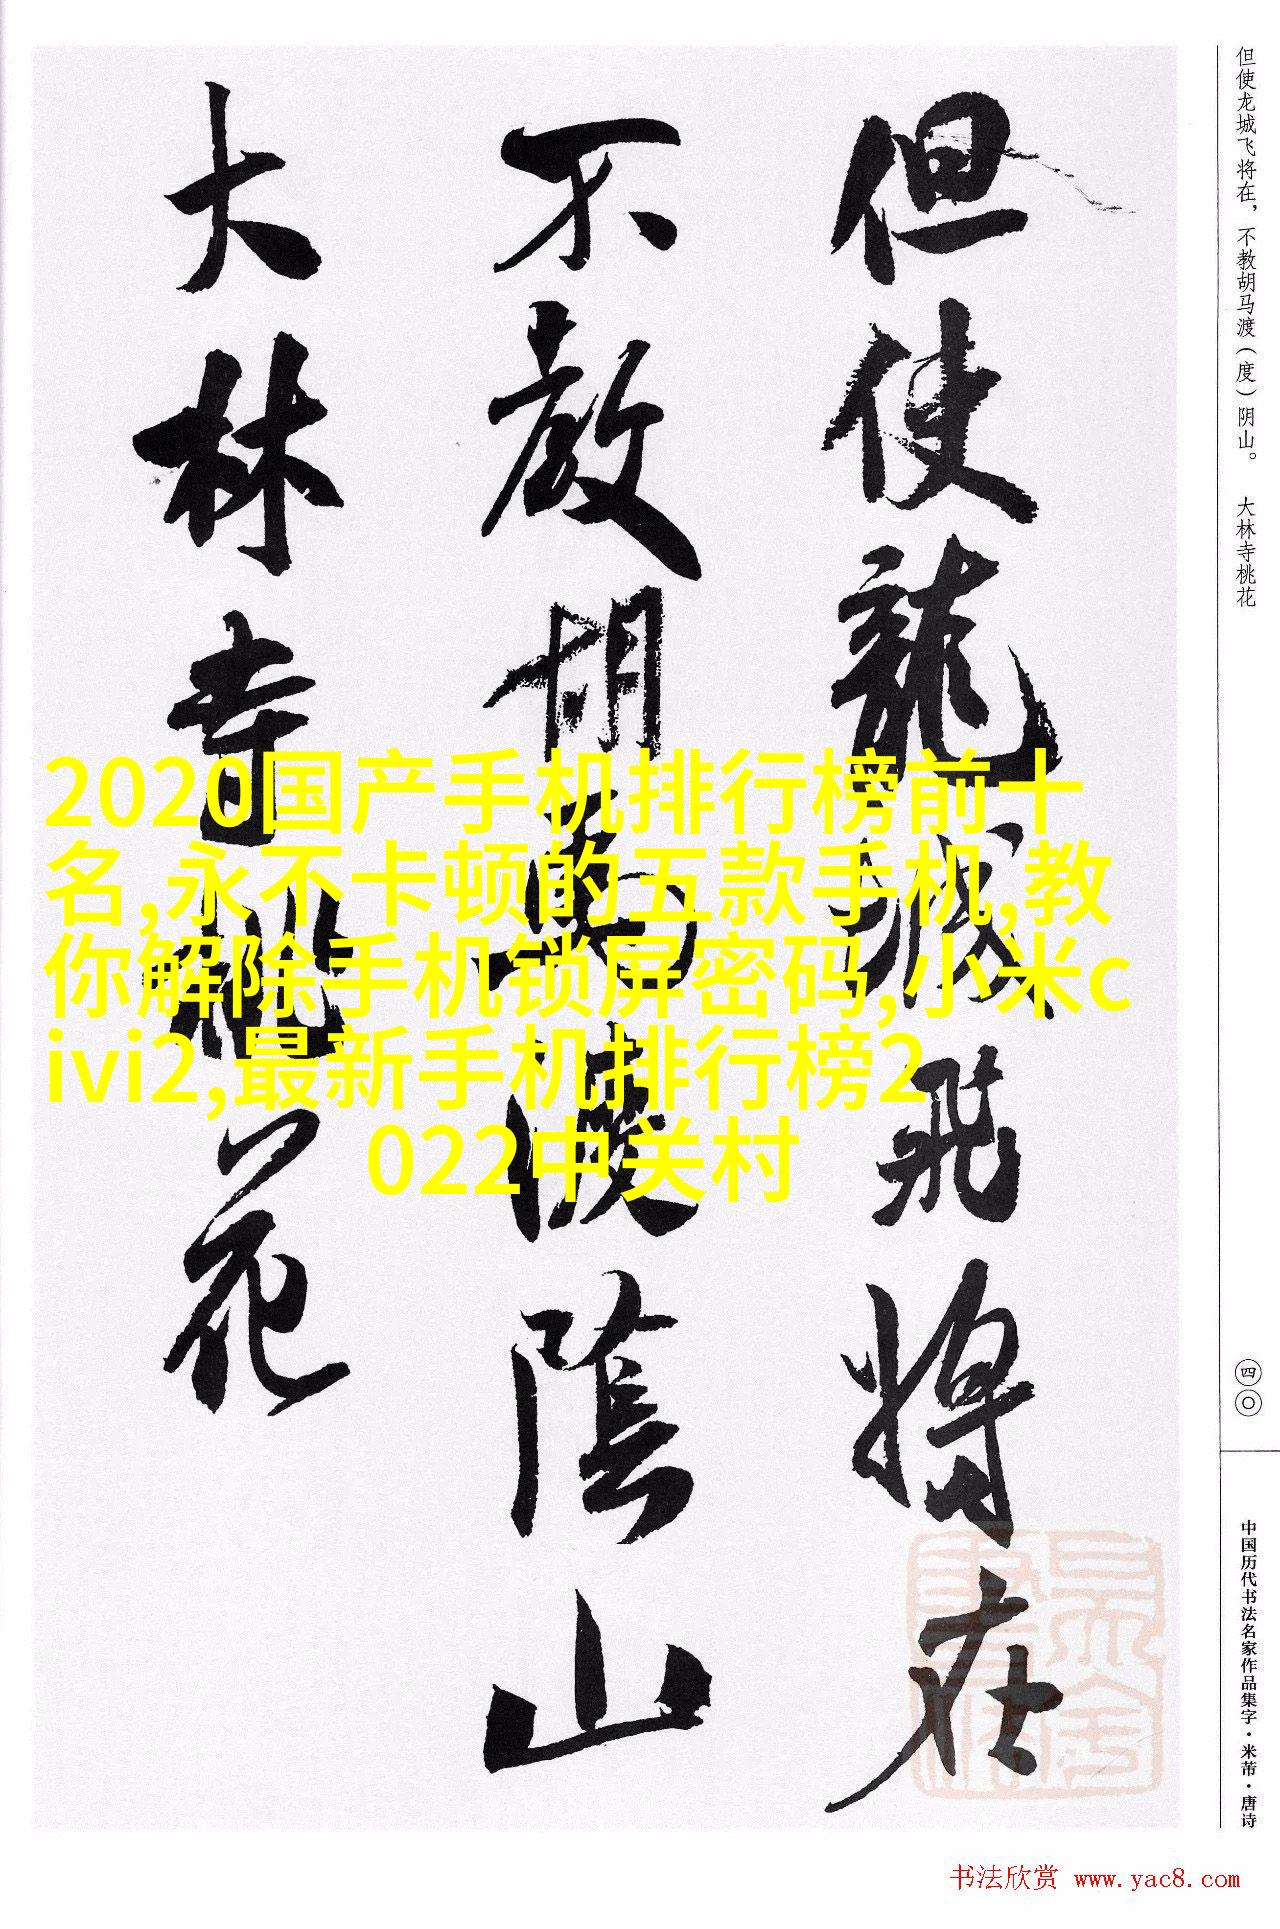 但使龙城飞将在，不教胡马渡（度）阴山。　大林寺桃花
但使龍城飛將在
不教胡馬渡陰山
大林寺桃花
2020国产手机排行榜前十
名,永不卡顿的五款手机,教
你解除手机锁屏密码,小米c
ivi2,最新手机排行榜2
022中关村
四〇
中国历代书法名家作品集字·米芾·唐诗
书法欣赏 www.yac8.com